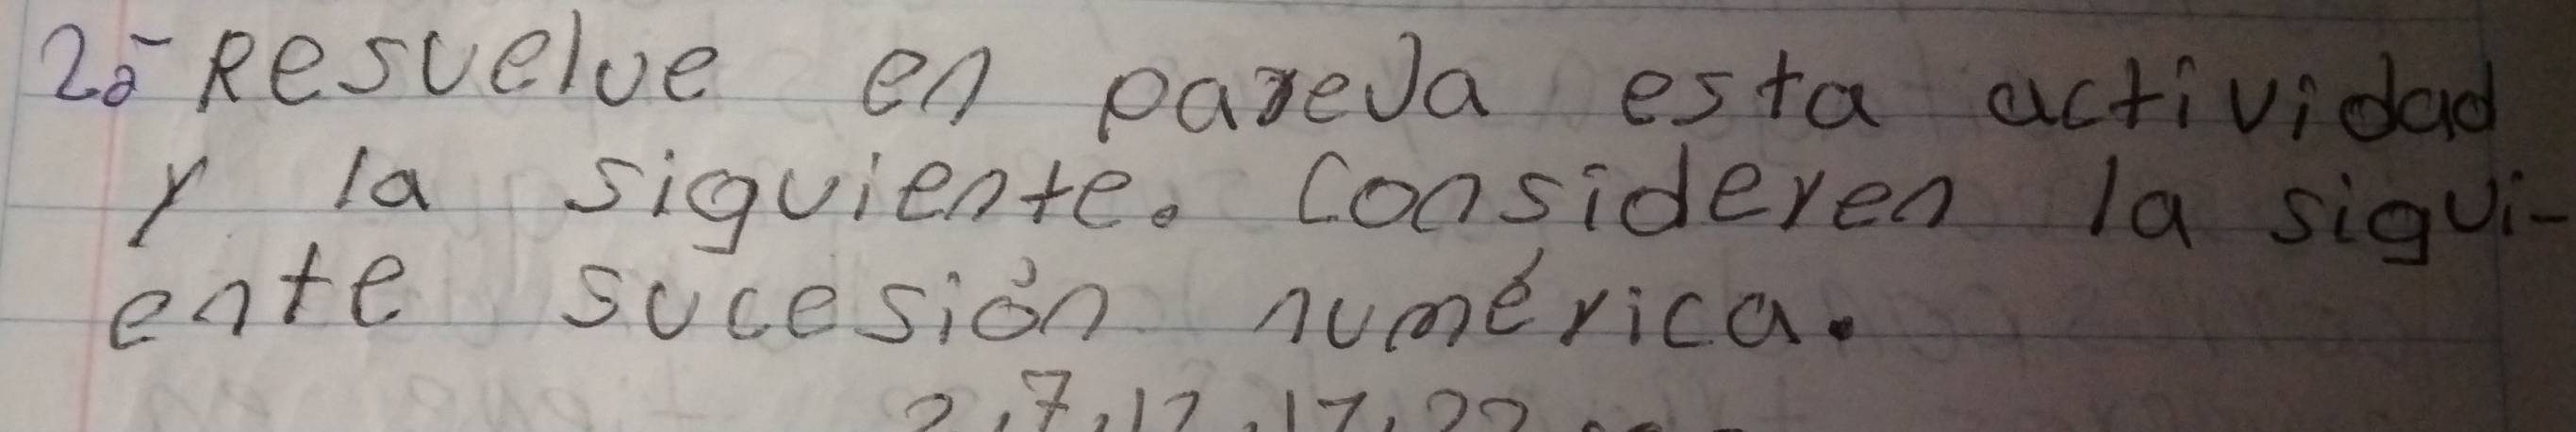 2.- Resuelve en pareja esta actividad
y la siguiente. Consideren la sigui-
ente sucesión numérica.
2, 7, 12, 17, 22 ...